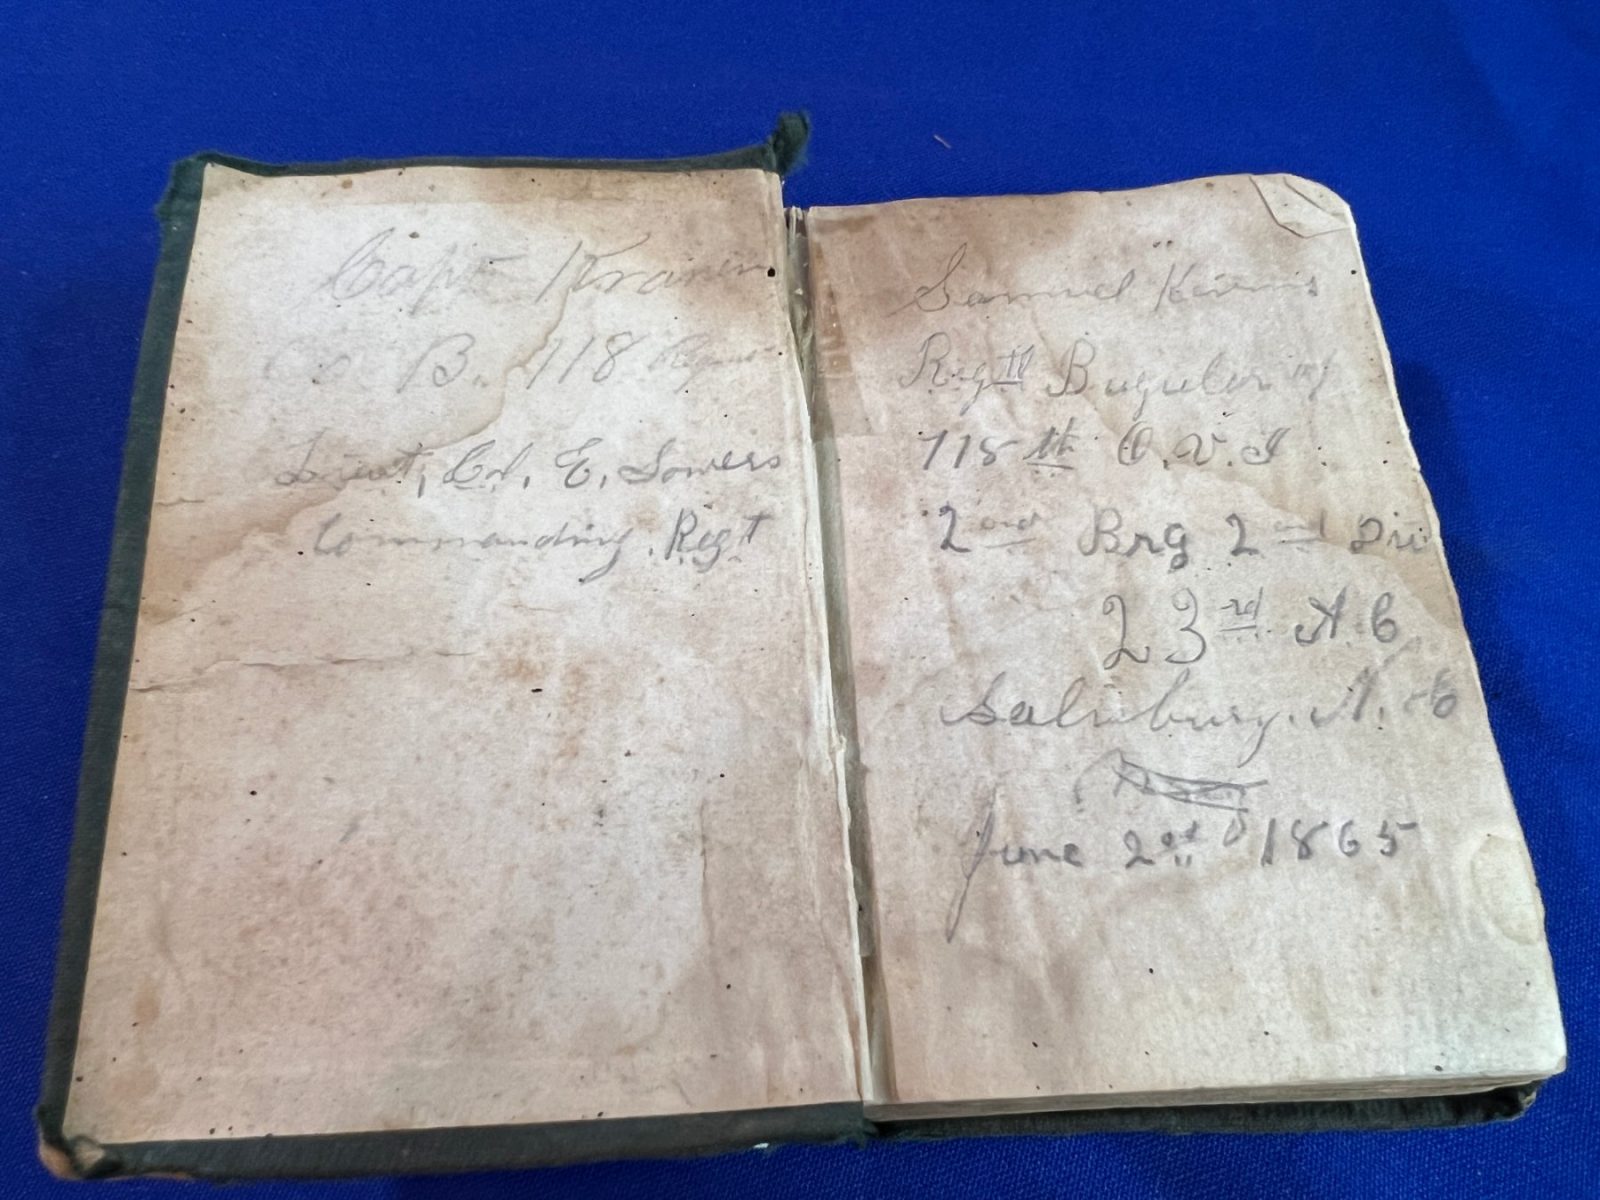 Capt Kramer
Co B. 118 Regmt
Lieut, Col, E, Sowers
Commanding Regt
Samuel Kirims
Regtl Buguler of
118th O. V. I
2nd Brg 2nd Div
23rd A. C
Salisbury. N. C
June 2nd 1865